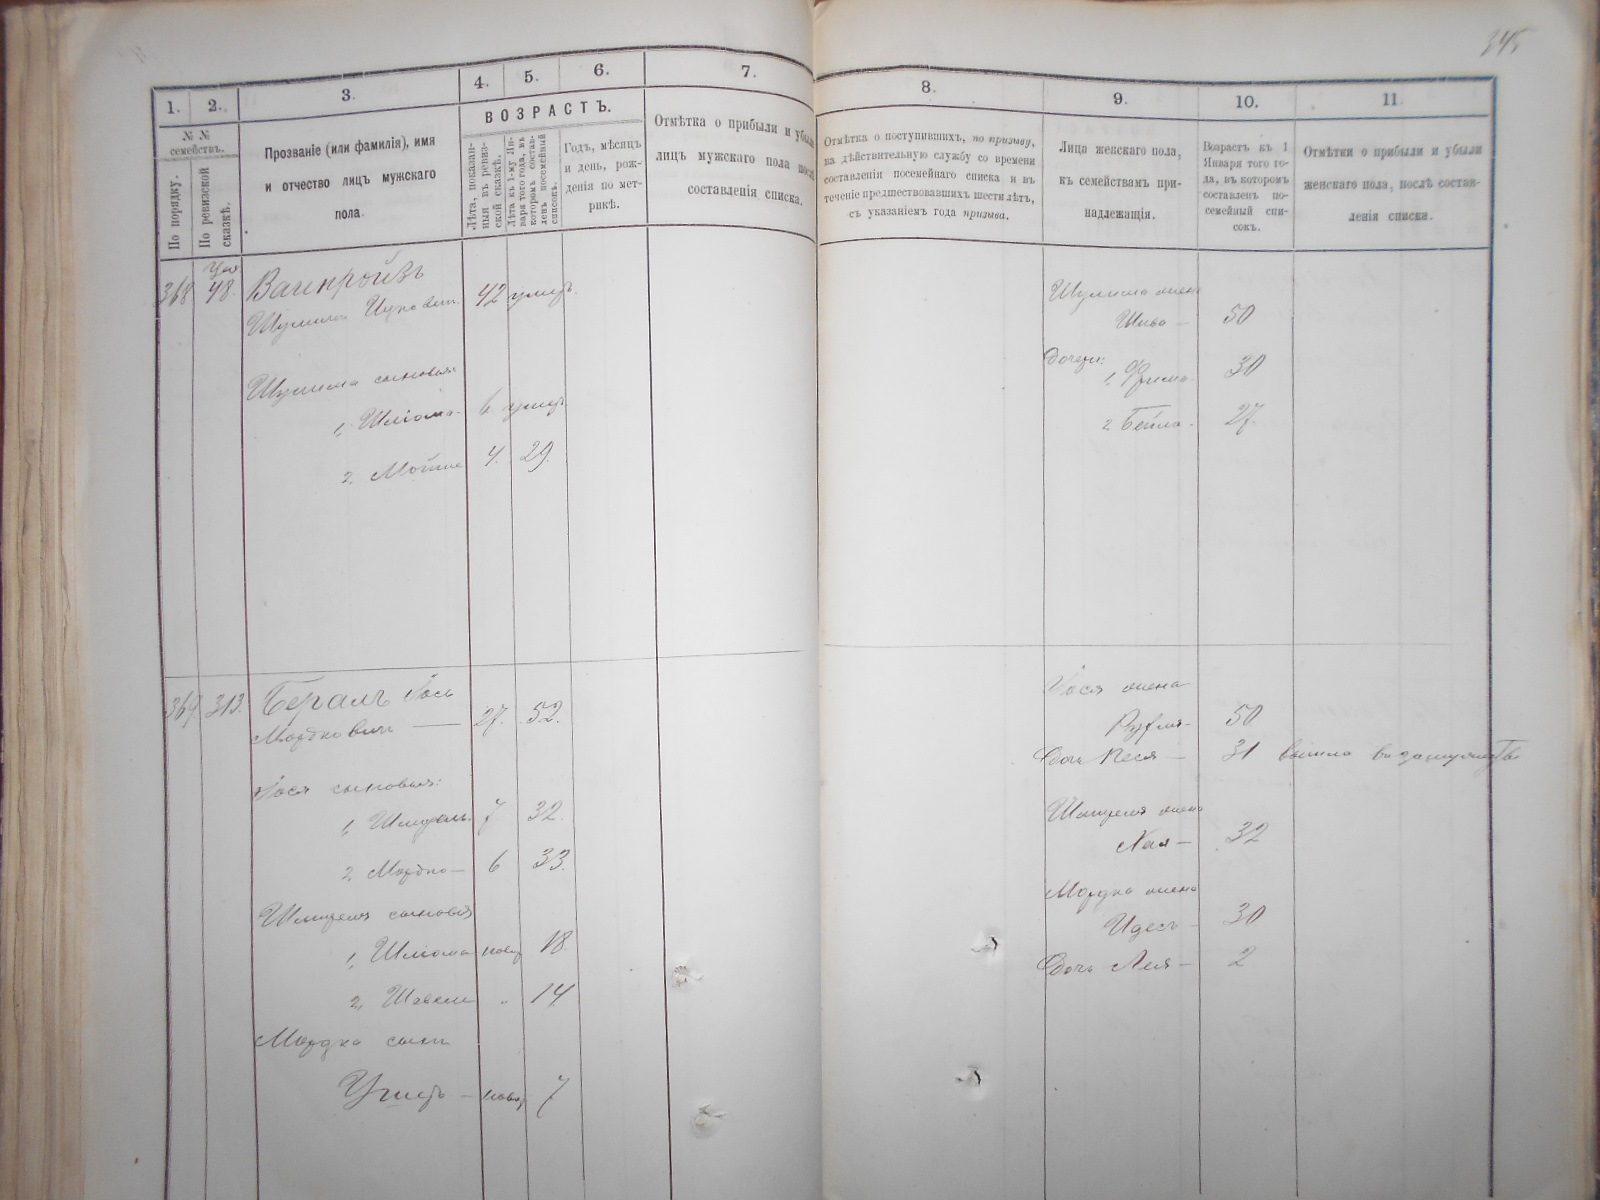 345
1.
2.
3.
4.
5.
6.
7.
№ №
семействъ.
По порядку.
По ревизской сказкѣ.
Прозваніе (или фамилія), имя
и отчество лицъ мужскаго
пола.
ВОЗРАСТЪ.
Лѣта, показан-
ныя въ ревиз-
ской сказкѣ.
Лѣта къ 1-му Ян-
варя того года, въ
которомъ состав-
ленъ посемейный
списокъ.
Годъ, мѣсяцъ
и день, рож-
денія по мет-
рикѣ.
Отмѣтка о прибыли и убыли
лицъ мужскаго пола послѣ
составленія списка.
368 48.
Шулима 42 умеръ.
Шулима сыновья:
1, Шліома 6 умеръ.
2, Мошко 4. 29.
369. 313. Бераль Іось
Мордковичъ — 27. 52.
Іося сыновья:
1, 7 32.
2, Мордко — 6 33.
сыновья
1, Шліома новор 18.
2, " 14.
Мордка сынъ
— новор 7
8.
9.
10.
11.
Отмѣтка о поступившихъ, по призыву,
на дѣйствительную службу со времени
составленія посемейнаго списка и въ
теченіе предшествовавшихъ шести лѣтъ,
съ указаніемъ года призыва.
Лица женскаго пола,
къ семействамъ при-
надлежащія.
Возрастъ къ 1
Января того го-
да, въ которомъ
составленъ по-
семейный спи-
сокъ.
Отмѣтки о прибыли и убыли
женскаго пола, послѣ состав-
ленія списка.
Шулима жена
— 50
Дочери:
1, 30
2 Бейла. 27.
Іося жена
Рухля — 50
Дочь Песя — 31 вышла въ замужество
жена
Хая — 32
Мордка жена
Идесъ — 30
Дочь Лея — 2